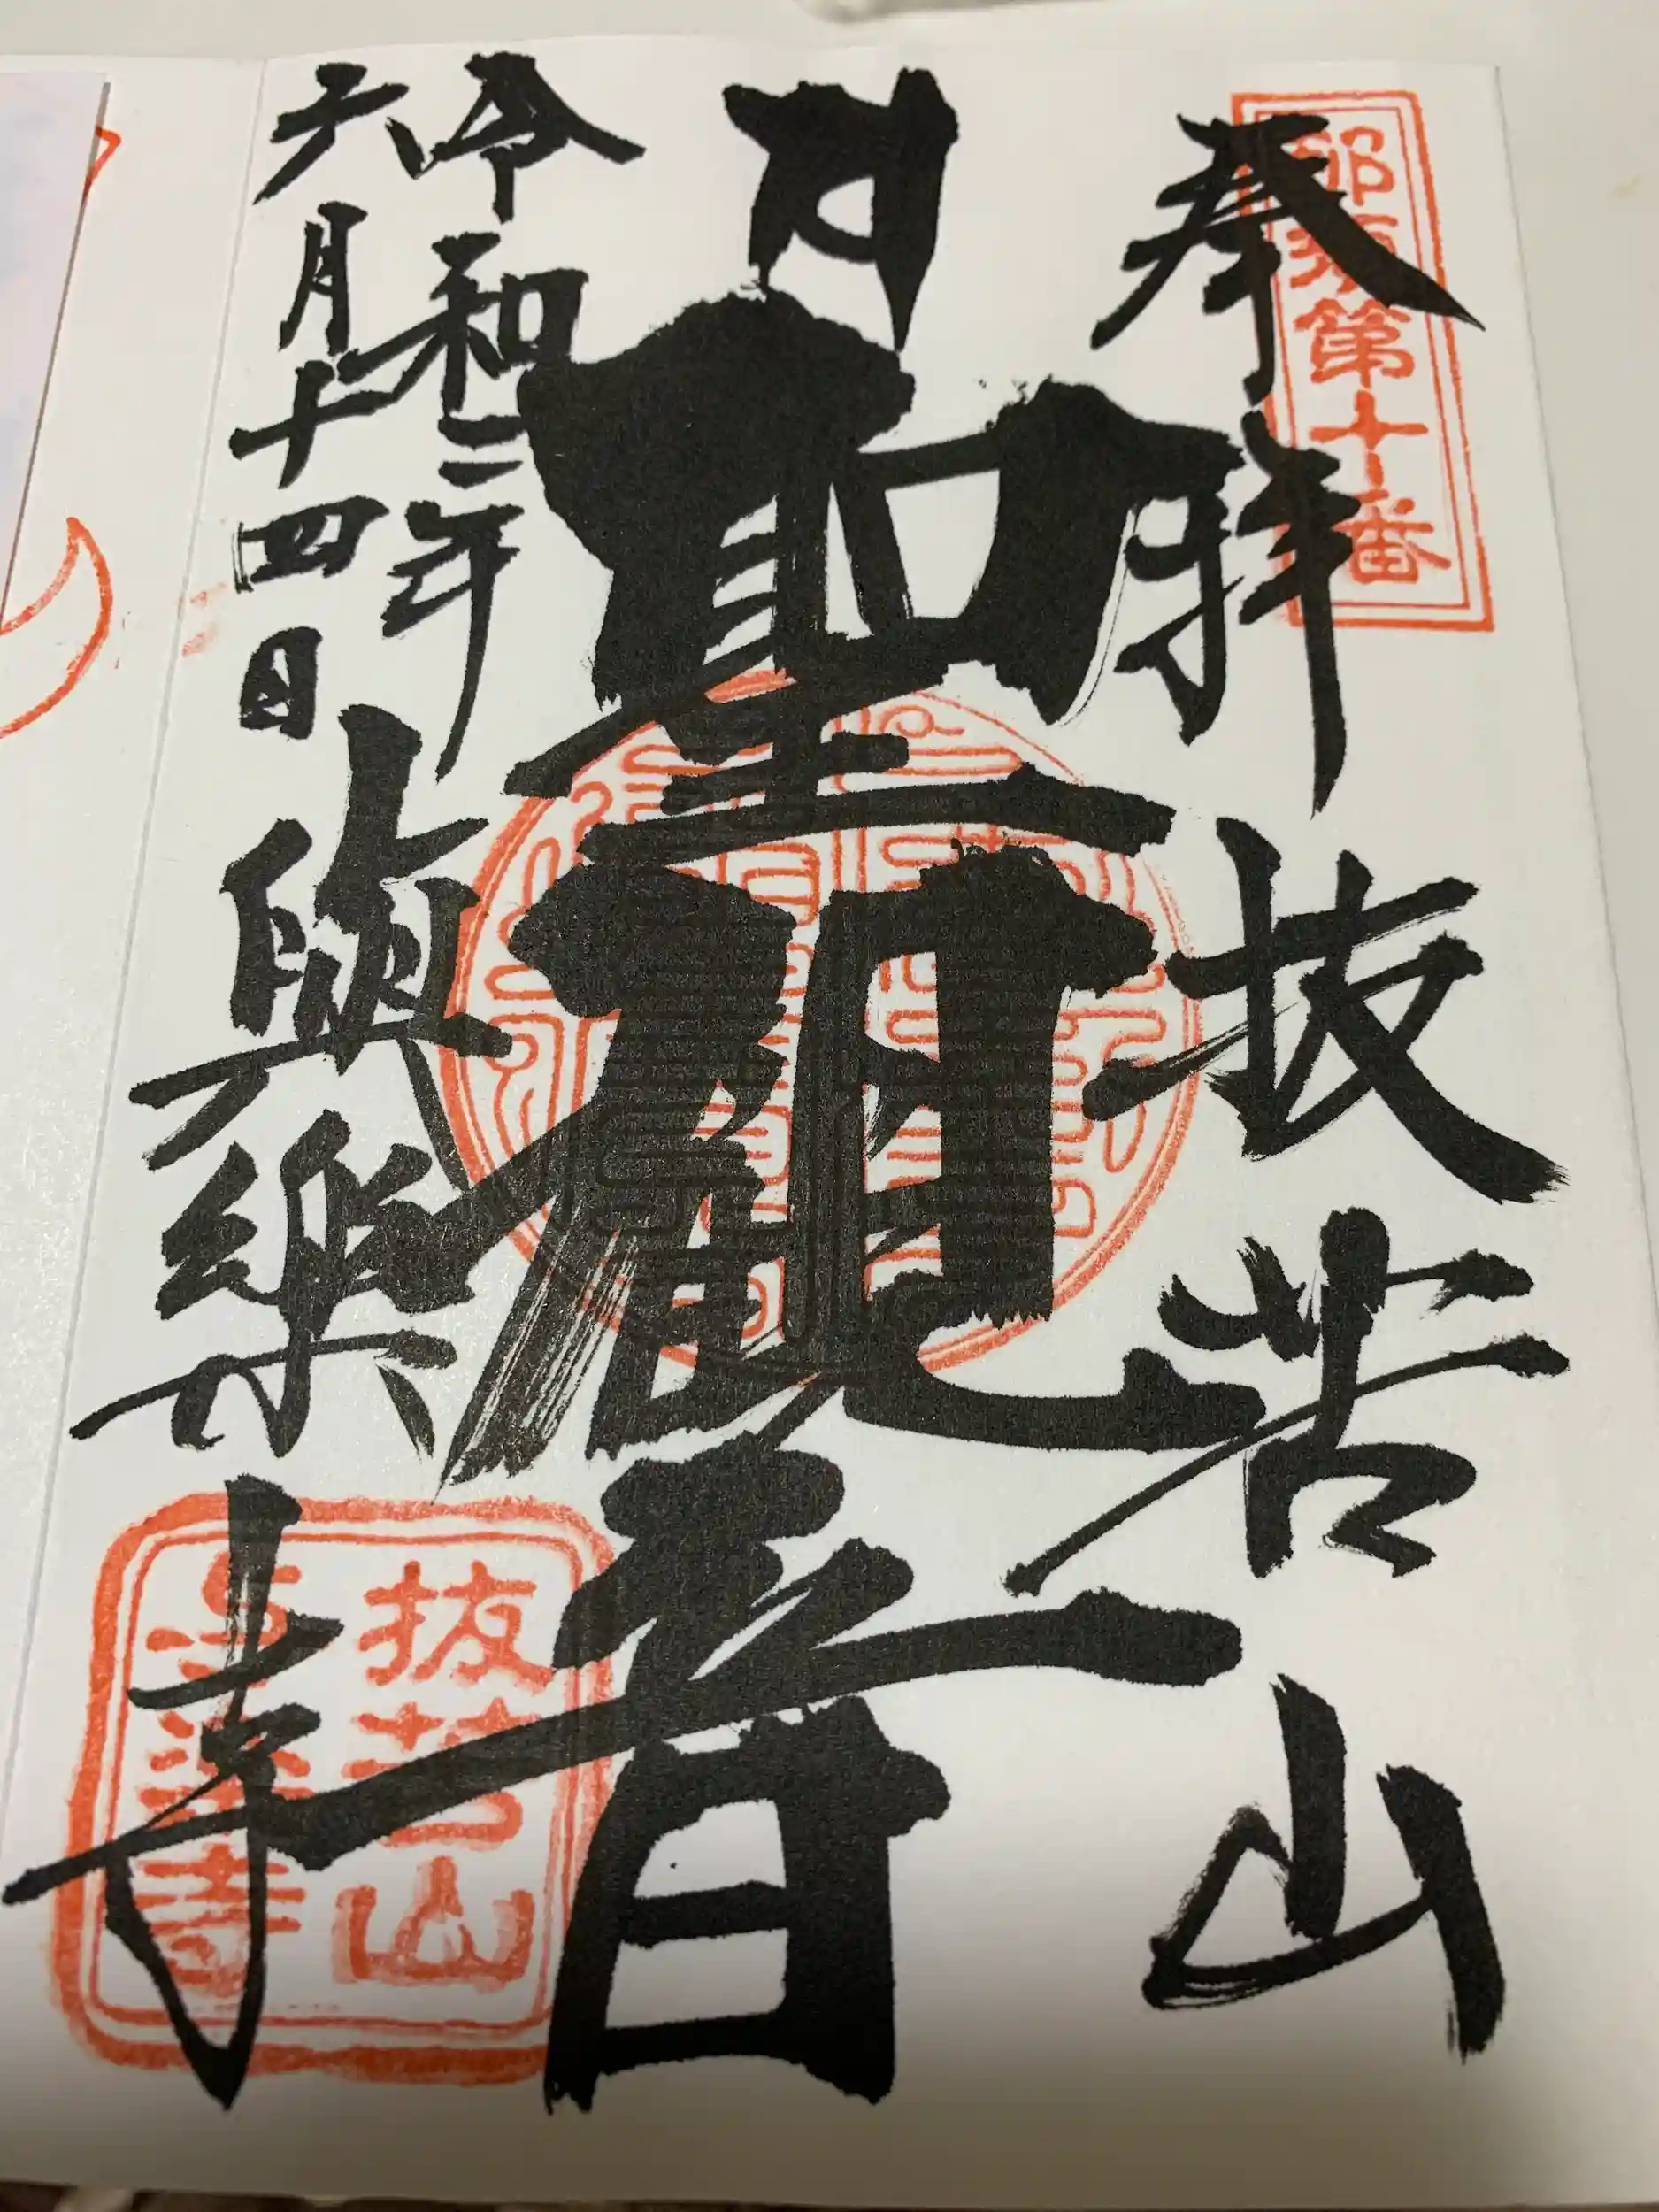 那須第十番
奉拝
抜苦山
聖観音
令和二年
六月十四日
與樂寺
抜苦山
与楽寺